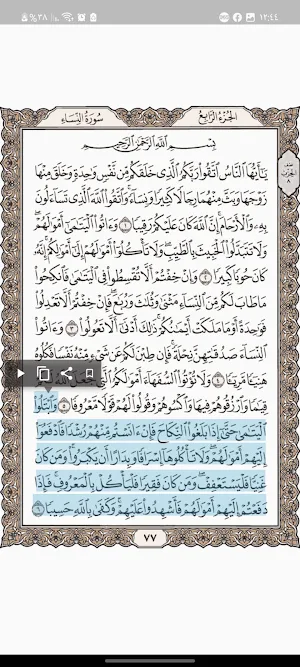 ٣٨% ١٢:٤٤
سُورَةُ النِّسَاءِ الجُزْءُ الرَّابِعُ
بِسْمِ اللَّهِ الرَّحْمَٰنِ الرَّحِيمِ
يَٰٓأَيُّهَا ٱلنَّاسُ ٱتَّقُوا۟ رَبَّكُمُ ٱلَّذِى خَلَقَكُم مِّن نَّفْسٍ وَٰحِدَةٍ وَخَلَقَ مِنْهَا
زَوْجَهَا وَبَثَّ مِنْهُمَا رِجَالًا كَثِيرًا وَنِسَآءً وَٱتَّقُوا۟ ٱللَّهَ ٱلَّذِى تَسَآءَلُونَ
بِهِۦ وَٱلْأَرْحَامَ إِنَّ ٱللَّهَ كَانَ عَلَيْكُمْ رَقِيبًا ١ وَءَاتُوا۟ ٱلْيَتَٰمَىٰٓ أَمْوَٰلَهُمْ
وَلَا تَتَبَدَّلُوا۟ ٱلْخَبِيثَ بِٱلطَّيِّبِ وَلَا تَأْكُلُوٓا۟ أَمْوَٰلَهُمْ إِلَىٰٓ أَمْوَٰلِكُمْ إِنَّهُۥ
كَانَ حُوبًا كَبِيرًا ٢ وَإِنْ خِفْتُمْ أَلَّا تُقْسِطُوا۟ فِى ٱلْيَتَٰمَىٰ فَٱنكِحُوا۟
مَا طَابَ لَكُم مِّنَ ٱلنِّسَآءِ مَثْنَىٰ وَثُلَٰثَ وَرُبَٰعَ فَإِنْ خِفْتُمْ أَلَّا تَعْدِلُوا۟
فَوَٰحِدَةً أَوْ مَا مَلَكَتْ أَيْمَٰنُكُمْ ذَٰلِكَ أَدْنَىٰٓ أَلَّا تَعُولُوا۟ ٣ وَءَاتُوا۟
ٱلنِّسَآءَ صَدُقَٰتِهِنَّ نِحْلَةً فَإِن طِبْنَ لَكُمْ عَن شَىْءٍ مِّنْهُ نَفْسًا فَكُلُوهُ
هَنِيٓـًٔا مَّرِيٓـًٔا ٤ وَلَا تُؤْتُوا۟ ٱلسُّفَهَآءَ أَمْوَٰلَكُمُ ٱلَّتِى جَعَلَ ٱللَّهُ
قِيَٰمًا وَٱرْزُقُوهُمْ فِيهَا وَٱكْسُوهُمْ وَقُولُوا۟ لَهُمْ قَوْلًا مَّعْرُوفًا ٥ وَٱبْتَلُوا۟
ٱلْيَتَٰمَىٰ حَتَّىٰٓ إِذَا بَلَغُوا۟ ٱلنِّكَاحَ فَإِنْ ءَانَسْتُم مِّنْهُمْ رُشْدًا فَٱدْفَعُوٓا۟
إِلَيْهِمْ أَمْوَٰلَهُمْ وَلَا تَأْكُلُوهَآ إِسْرَافًا وَبِدَارًا أَن يَكْبَرُوا۟ وَمَن كَانَ
غَنِيًّا فَلْيَسْتَعْفِفْ وَمَن كَانَ فَقِيرًا فَلْيَأْكُلْ بِٱلْمَعْرُوفِ فَإِذَا
دَفَعْتُمْ إِلَيْهِمْ أَمْوَٰلَهُمْ فَأَشْهِدُوا۟ عَلَيْهِمْ وَكَفَىٰ بِٱللَّهِ حَسِيبًا ٦
٧٧